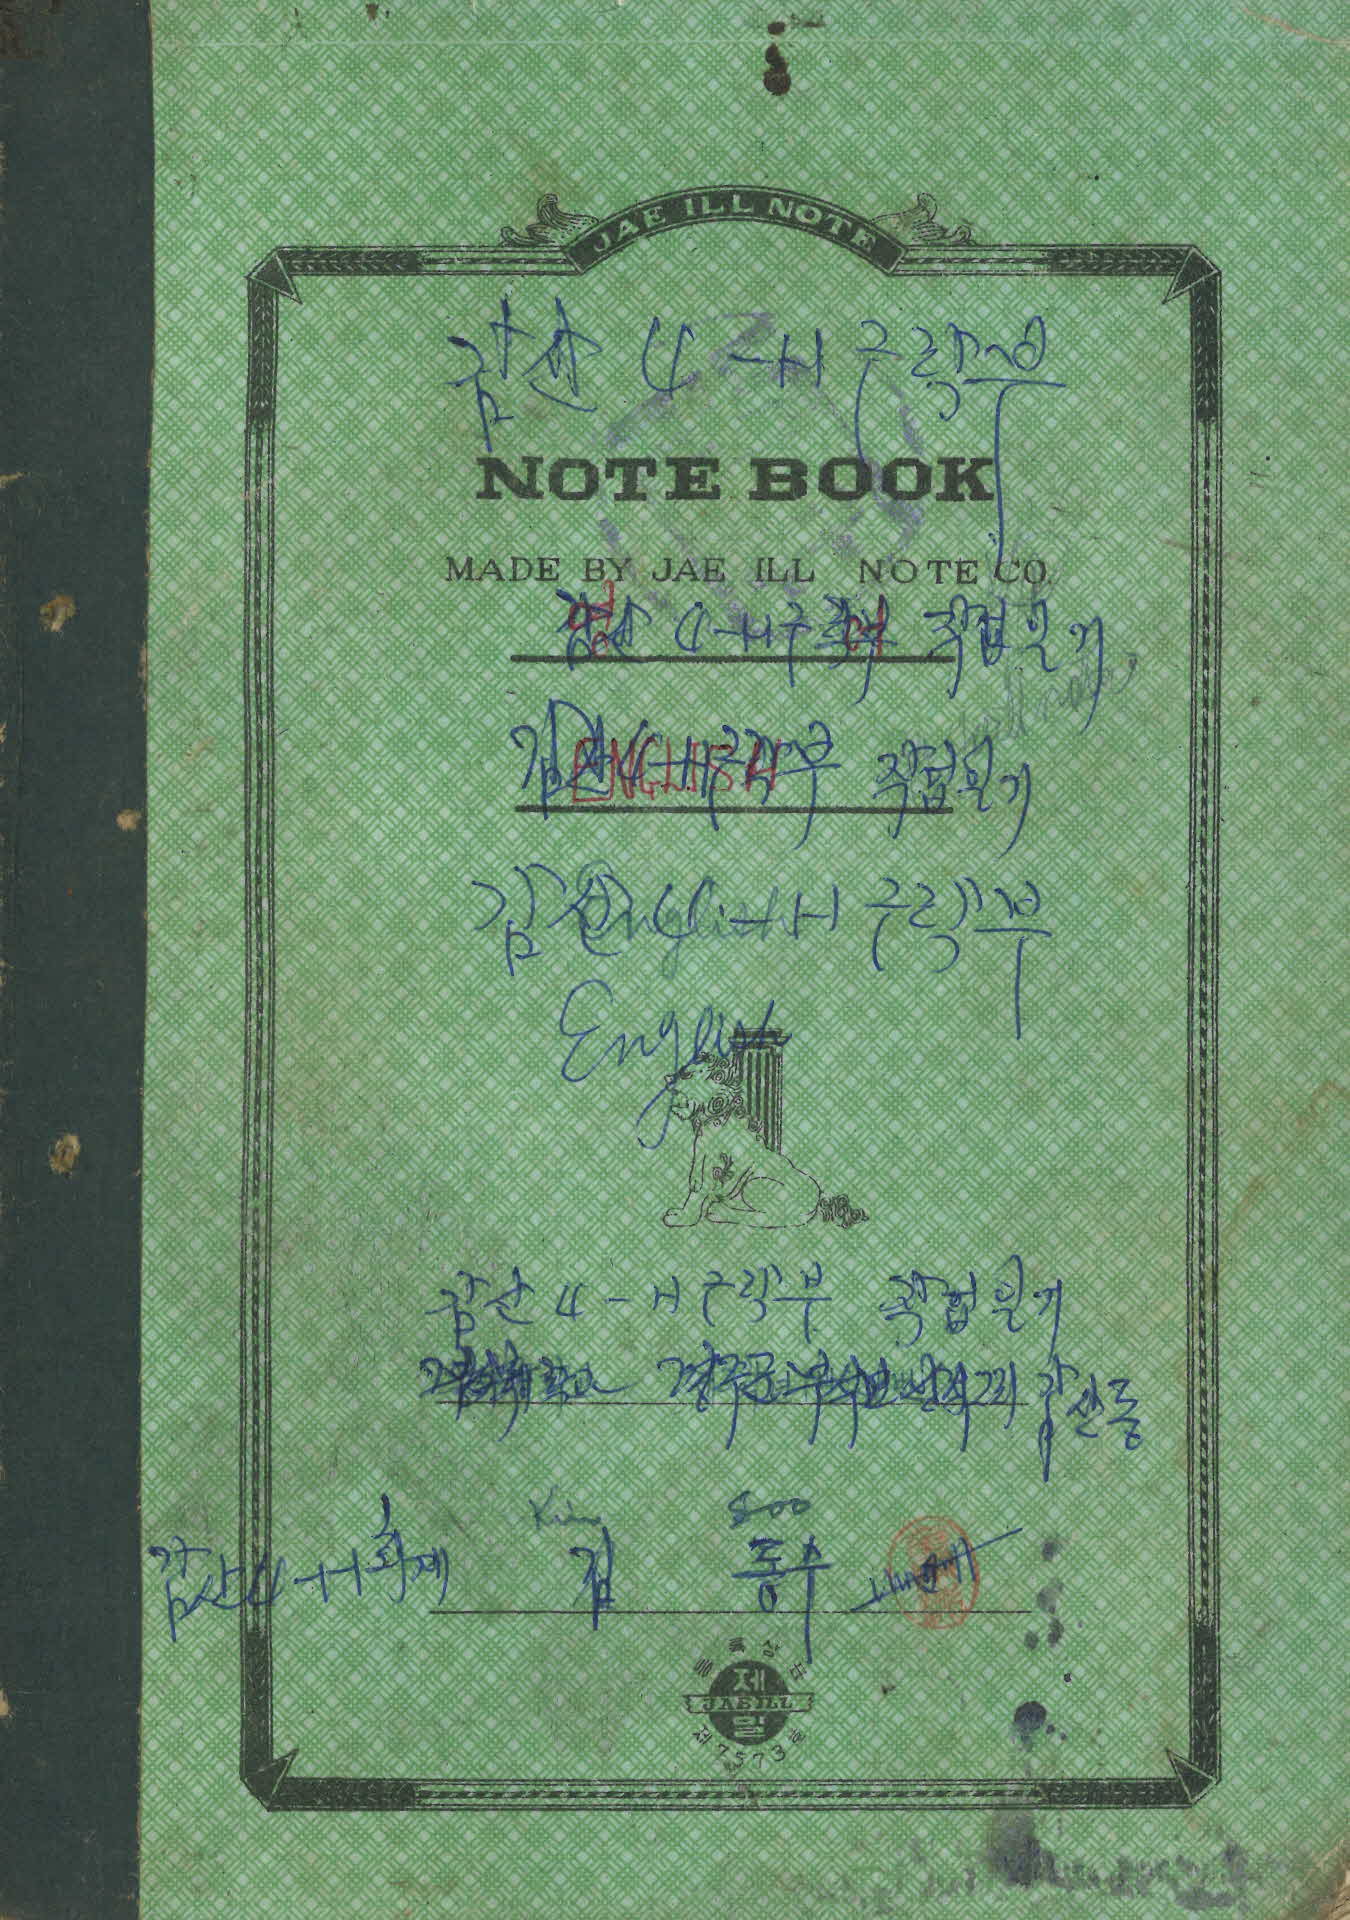 JAE ILL NOTE
감산 4-H 구락부
NOTE BOOK
MADE BY JAE ILL NOTE CO.
감산 4-H 구락부 작업일기
영어
감산 4-H 구락부 작업일기
ENGLISH
감산 4-H 구락부
English
English
감산 4-H 구락부 작업일기
감산동
Kim Soo
감산 4-H 회제 김 동수
등록상표
제일
JAE ILL
제7573호